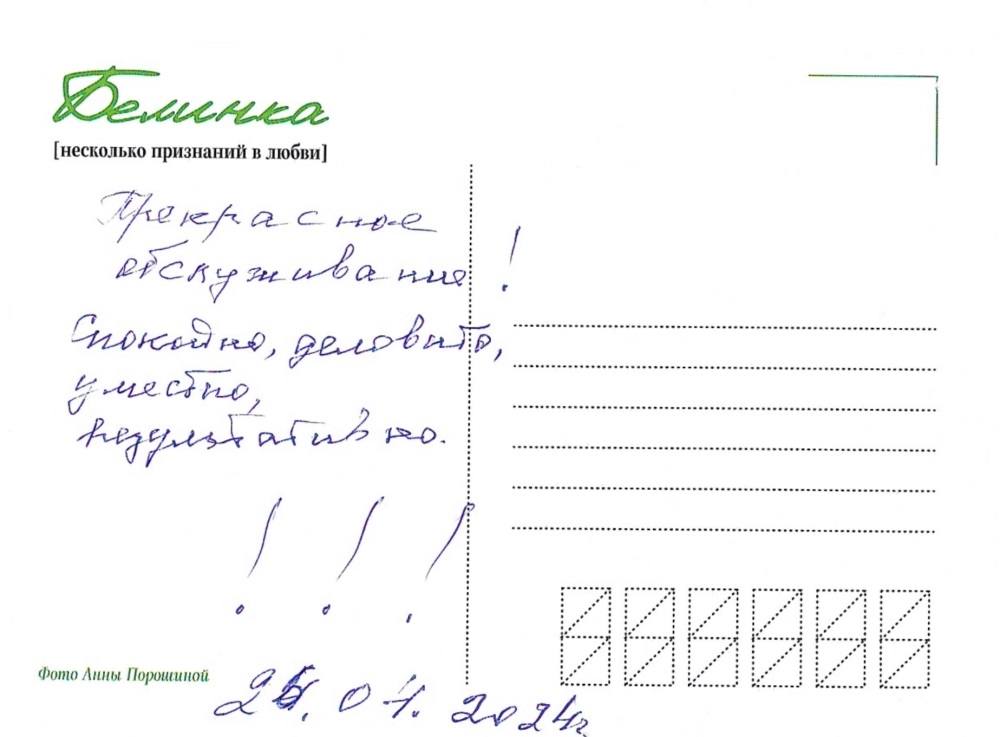 Белинка
[несколько признаний в любви]
Прекрасное
обслуживание!
Спокойно, деловито,
уместно,
результативно.
! ! !
Фото Анны Порошиной
01.2024г